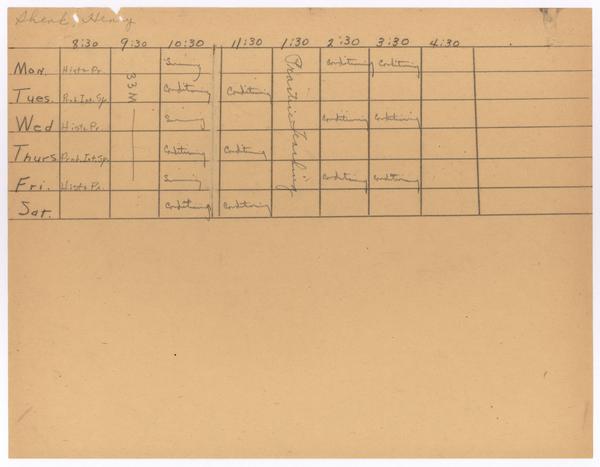 Shenk, Henry
8:30 9:30 10:30 11:30 1:30 2:30 3:30 4:30
Mon. Hist+Pr. 33M Swimming Practice Teaching Conditioning Conditioning
Tues. Prob.Int.Sp. Conditioning Conditioning
Wed Hist+Pr. Swimming Conditioning Conditioning
Thurs Prob.Int.Sp. Conditioning Conditioning
Fri. Hist+Pr. Swimming Conditioning Conditioning
Sat. Conditioning Conditioning